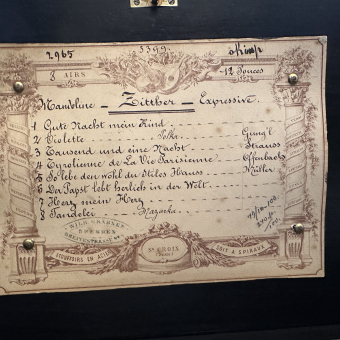 2965
5399.
8 AIRS
12 Pouces
Mandoline - Zitther - Expressive.
1 Gute Nacht mein Kind.
2 Violette Polka Gung'l
3 Tausend und eine Nacht Strauss
4 Tyrolienne de La Vie Parisienne Offenbach
5 So lebe den wohl du stiles Hauss Müller
6 Der Papst lebt herlich in der Welt
7 Herz mein Herz
8 Tandelei Mazurka
WILH. GRABNER
DRESDEN
STE CROIX
(Suisse)
FOURNITURE EN ACIER